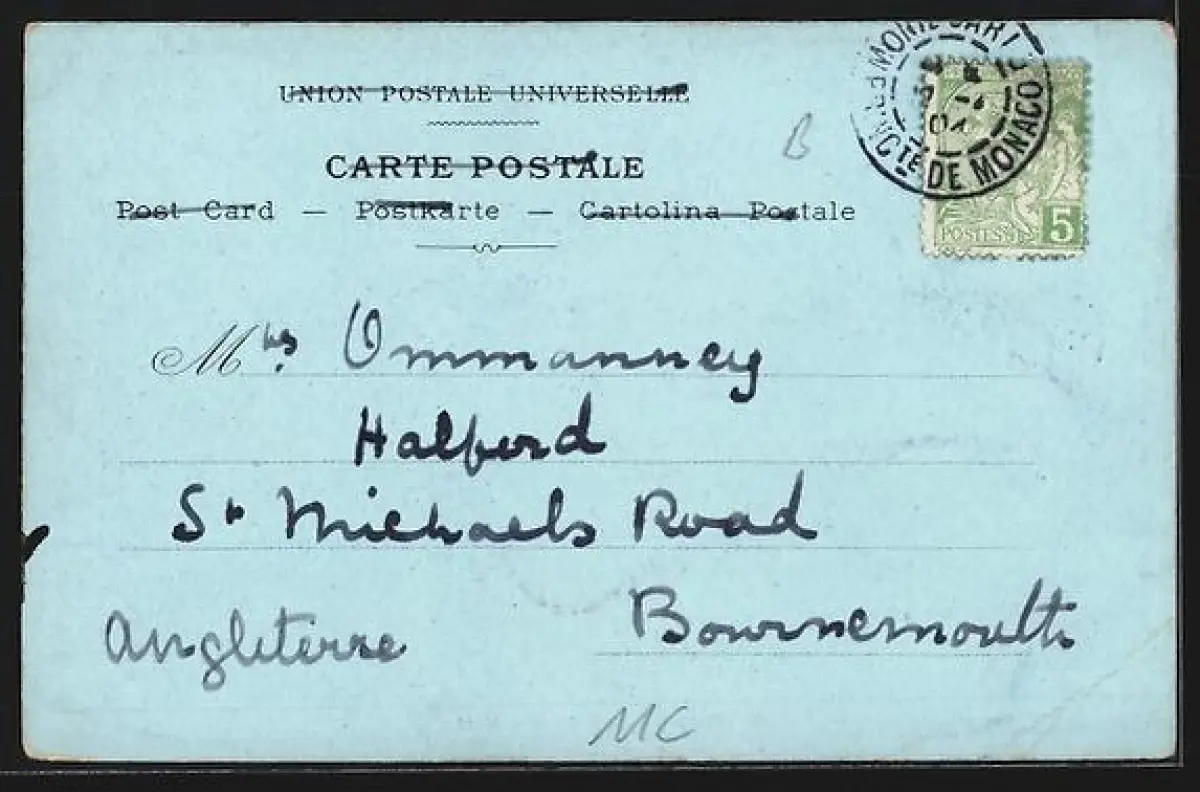 UNION POSTALE UNIVERSELLE
CARTE POSTALE
Post Card — Postkarte — Cartolina Postale
B
MONTE CARL
PRINCTÉ DE MONACO
04
POSTES 5
Mrs Ommanney
Halford
St Michaels Road
Bournemouth
Angleterre
MC